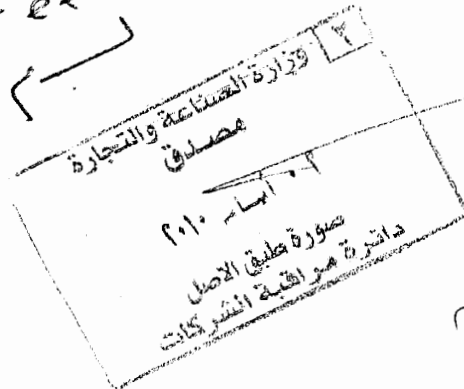 ٢
وزارة الصناعة والتجارة
مصدق
أيار ٢٠١٠
صورة طبق الاصل
دائرة مراقبة الشركات